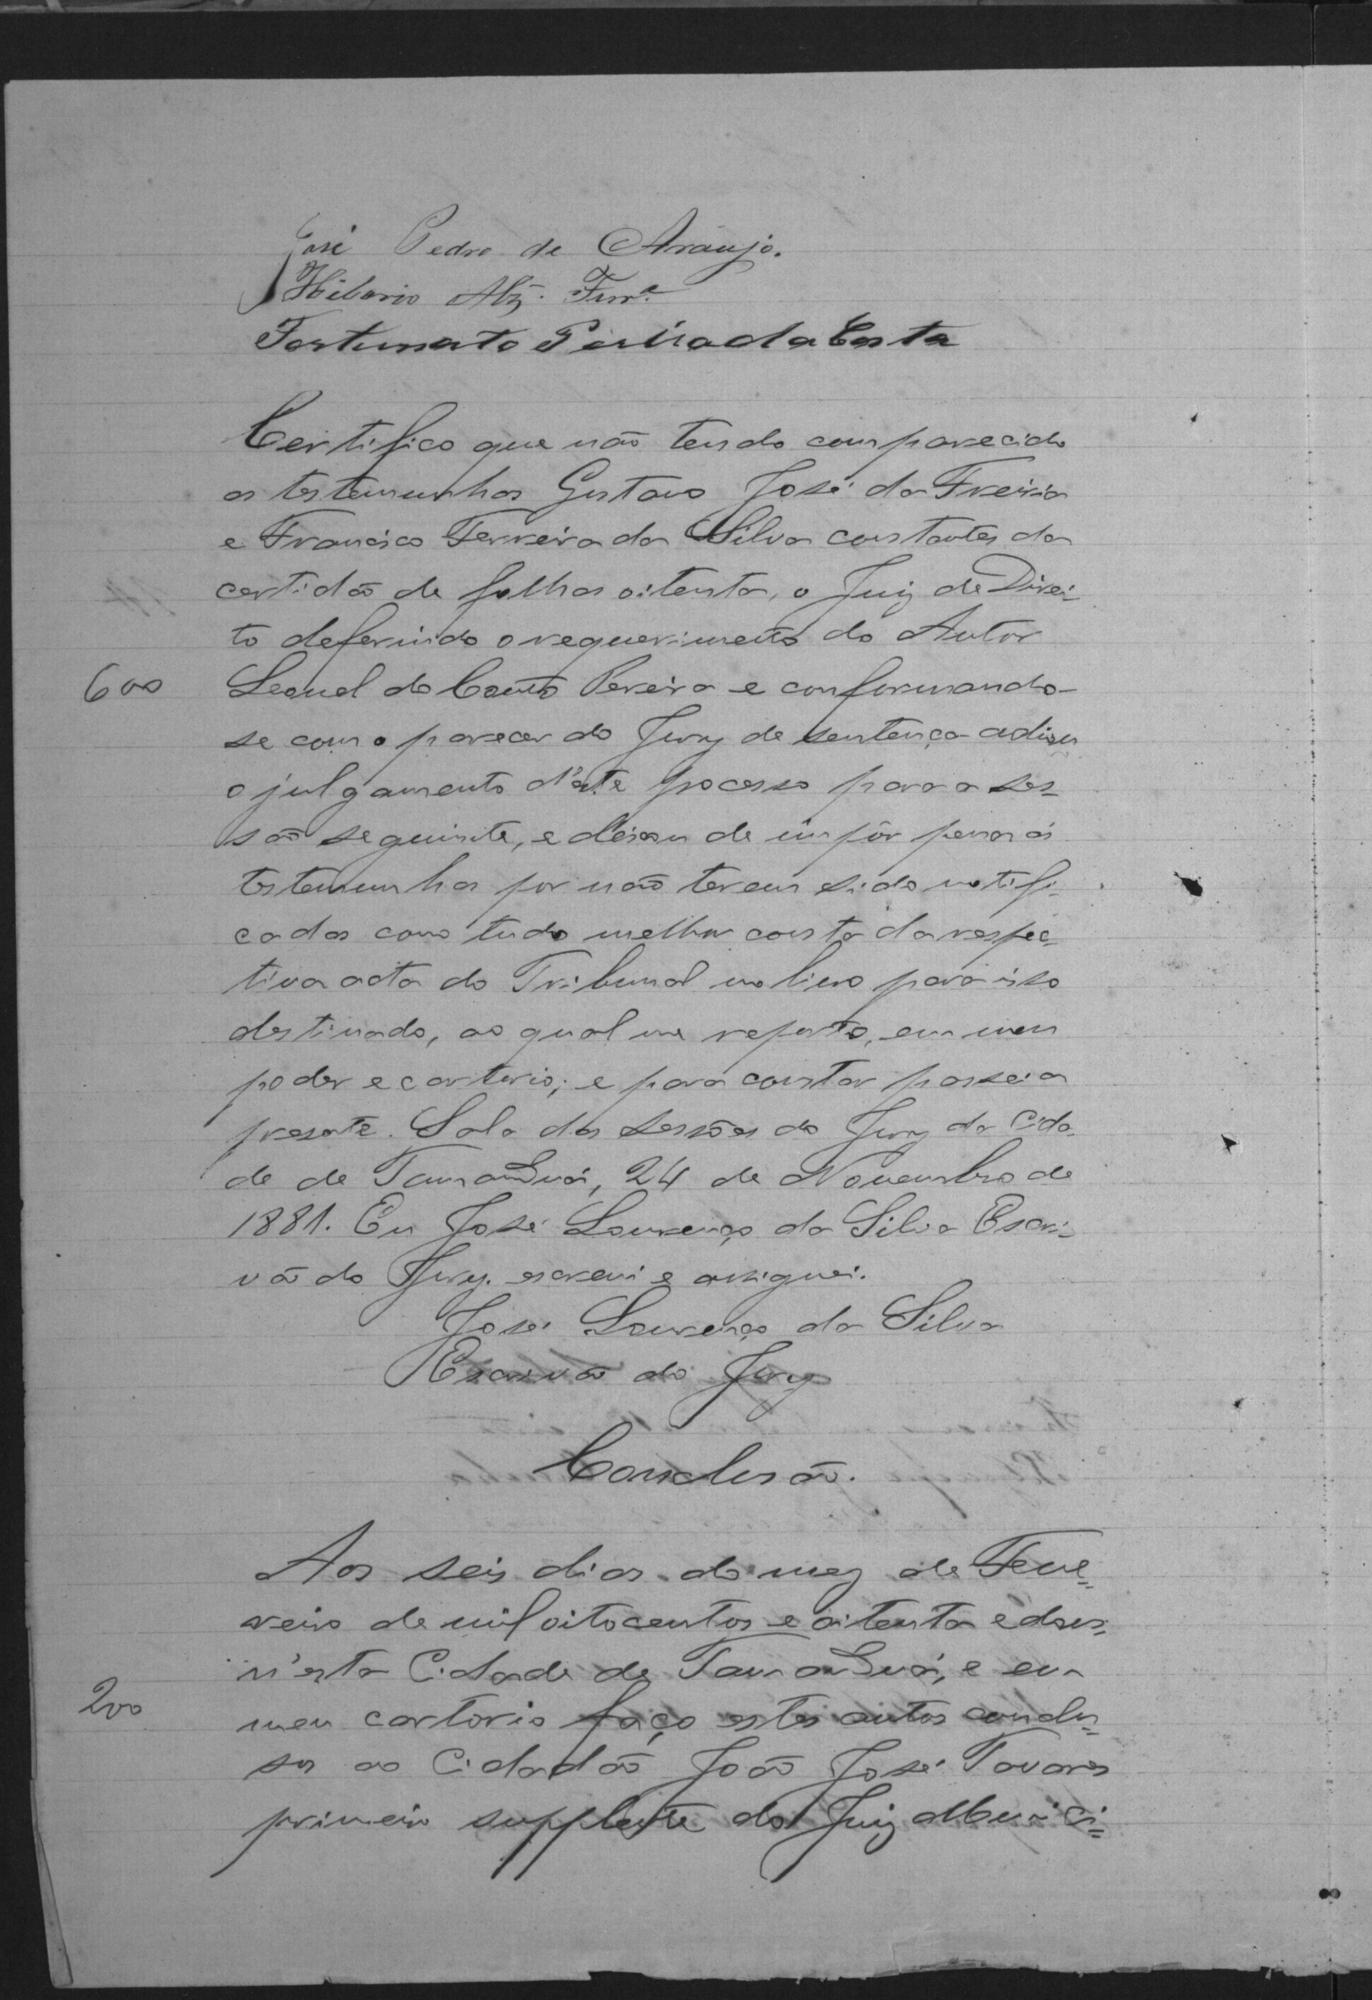 José Pedro de Araujo.
Hilario Alz. Ferra.
Fortunato Pereira da Costa
Certifico que não tendo comparecido
as testemunhas Gustavo José da
e Francisco Ferreira da Silva constantes da
certidão de folhas oitenta, o Juiz de Direi-
to deferindo o requerimento do Autor
600 Leonel do Couto Pereira e conformando-
se com o parecer do Jury de sentença adiou
o julgamento d'este processo para a ses-
são seguinte, e deixou de impôr pena ás
testemunhas por não terem sido notifi-
cadas como tudo melhor consta da respec-
tiva acta do Tribunal no livro para isso
destinado, ao qual me reporto, em meu
poder e cartorio; e para constar passei a
presente. Sala das sessões do Jury da Cida-
de de TamanDuá, 24 de Novembro de
1881. Eu José Lourenço da Silva Escri-
vão do Jury. escrevi e assignei.
José Lourenço da Silva
Escrivão do Jury
Conclusão.
Aos seis dias do mez de Feve-
reiro de mil oitocentos e oitenta e dous,
n'esta Cidade de TamanDuá, e em
200 meu cartorio faço estes autos conclu-
sos ao Cidadão João José Tavares
primeiro supplente do Juiz Munici-